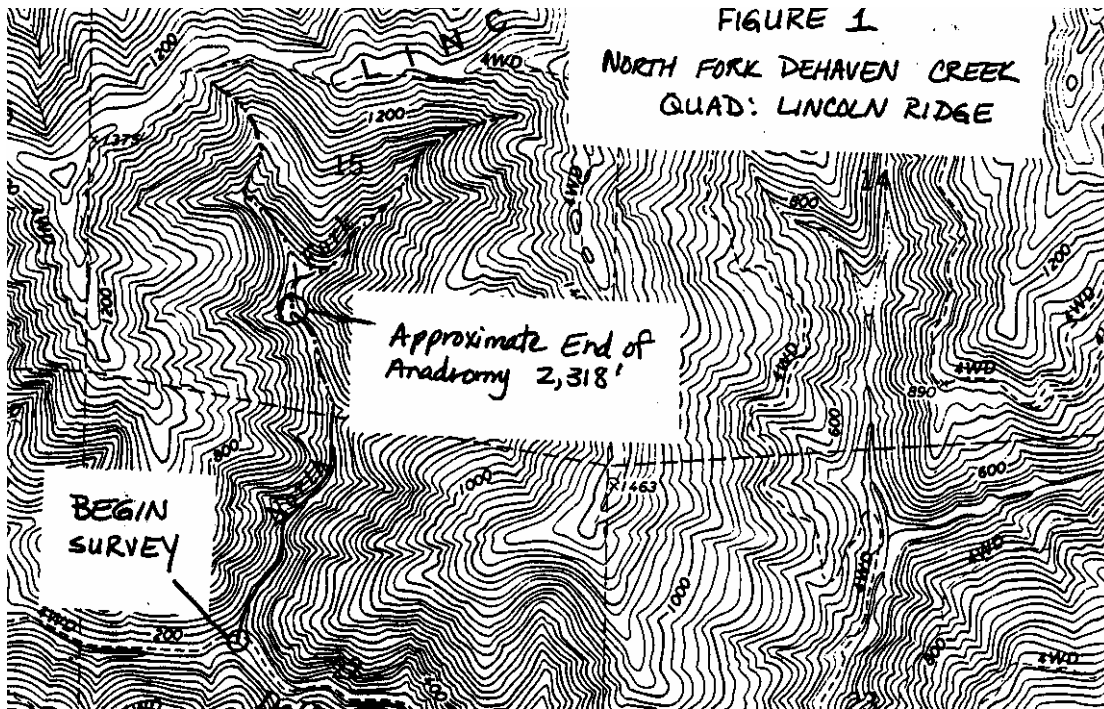 FIGURE 1
NORTH FORK DEHAVEN CREEK
QUAD: LINCOLN RIDGE
1200
L I N C
4WD
1375
1200
15
14
4WD
800
North
1200
1200
4WD
Approximate End of
Anadromy 2,318'
4WD
4WD
890
600
800
North
1000
1463
600
BEGIN
SURVEY
4WD
4WD
1000
4WD
200
800
4WD